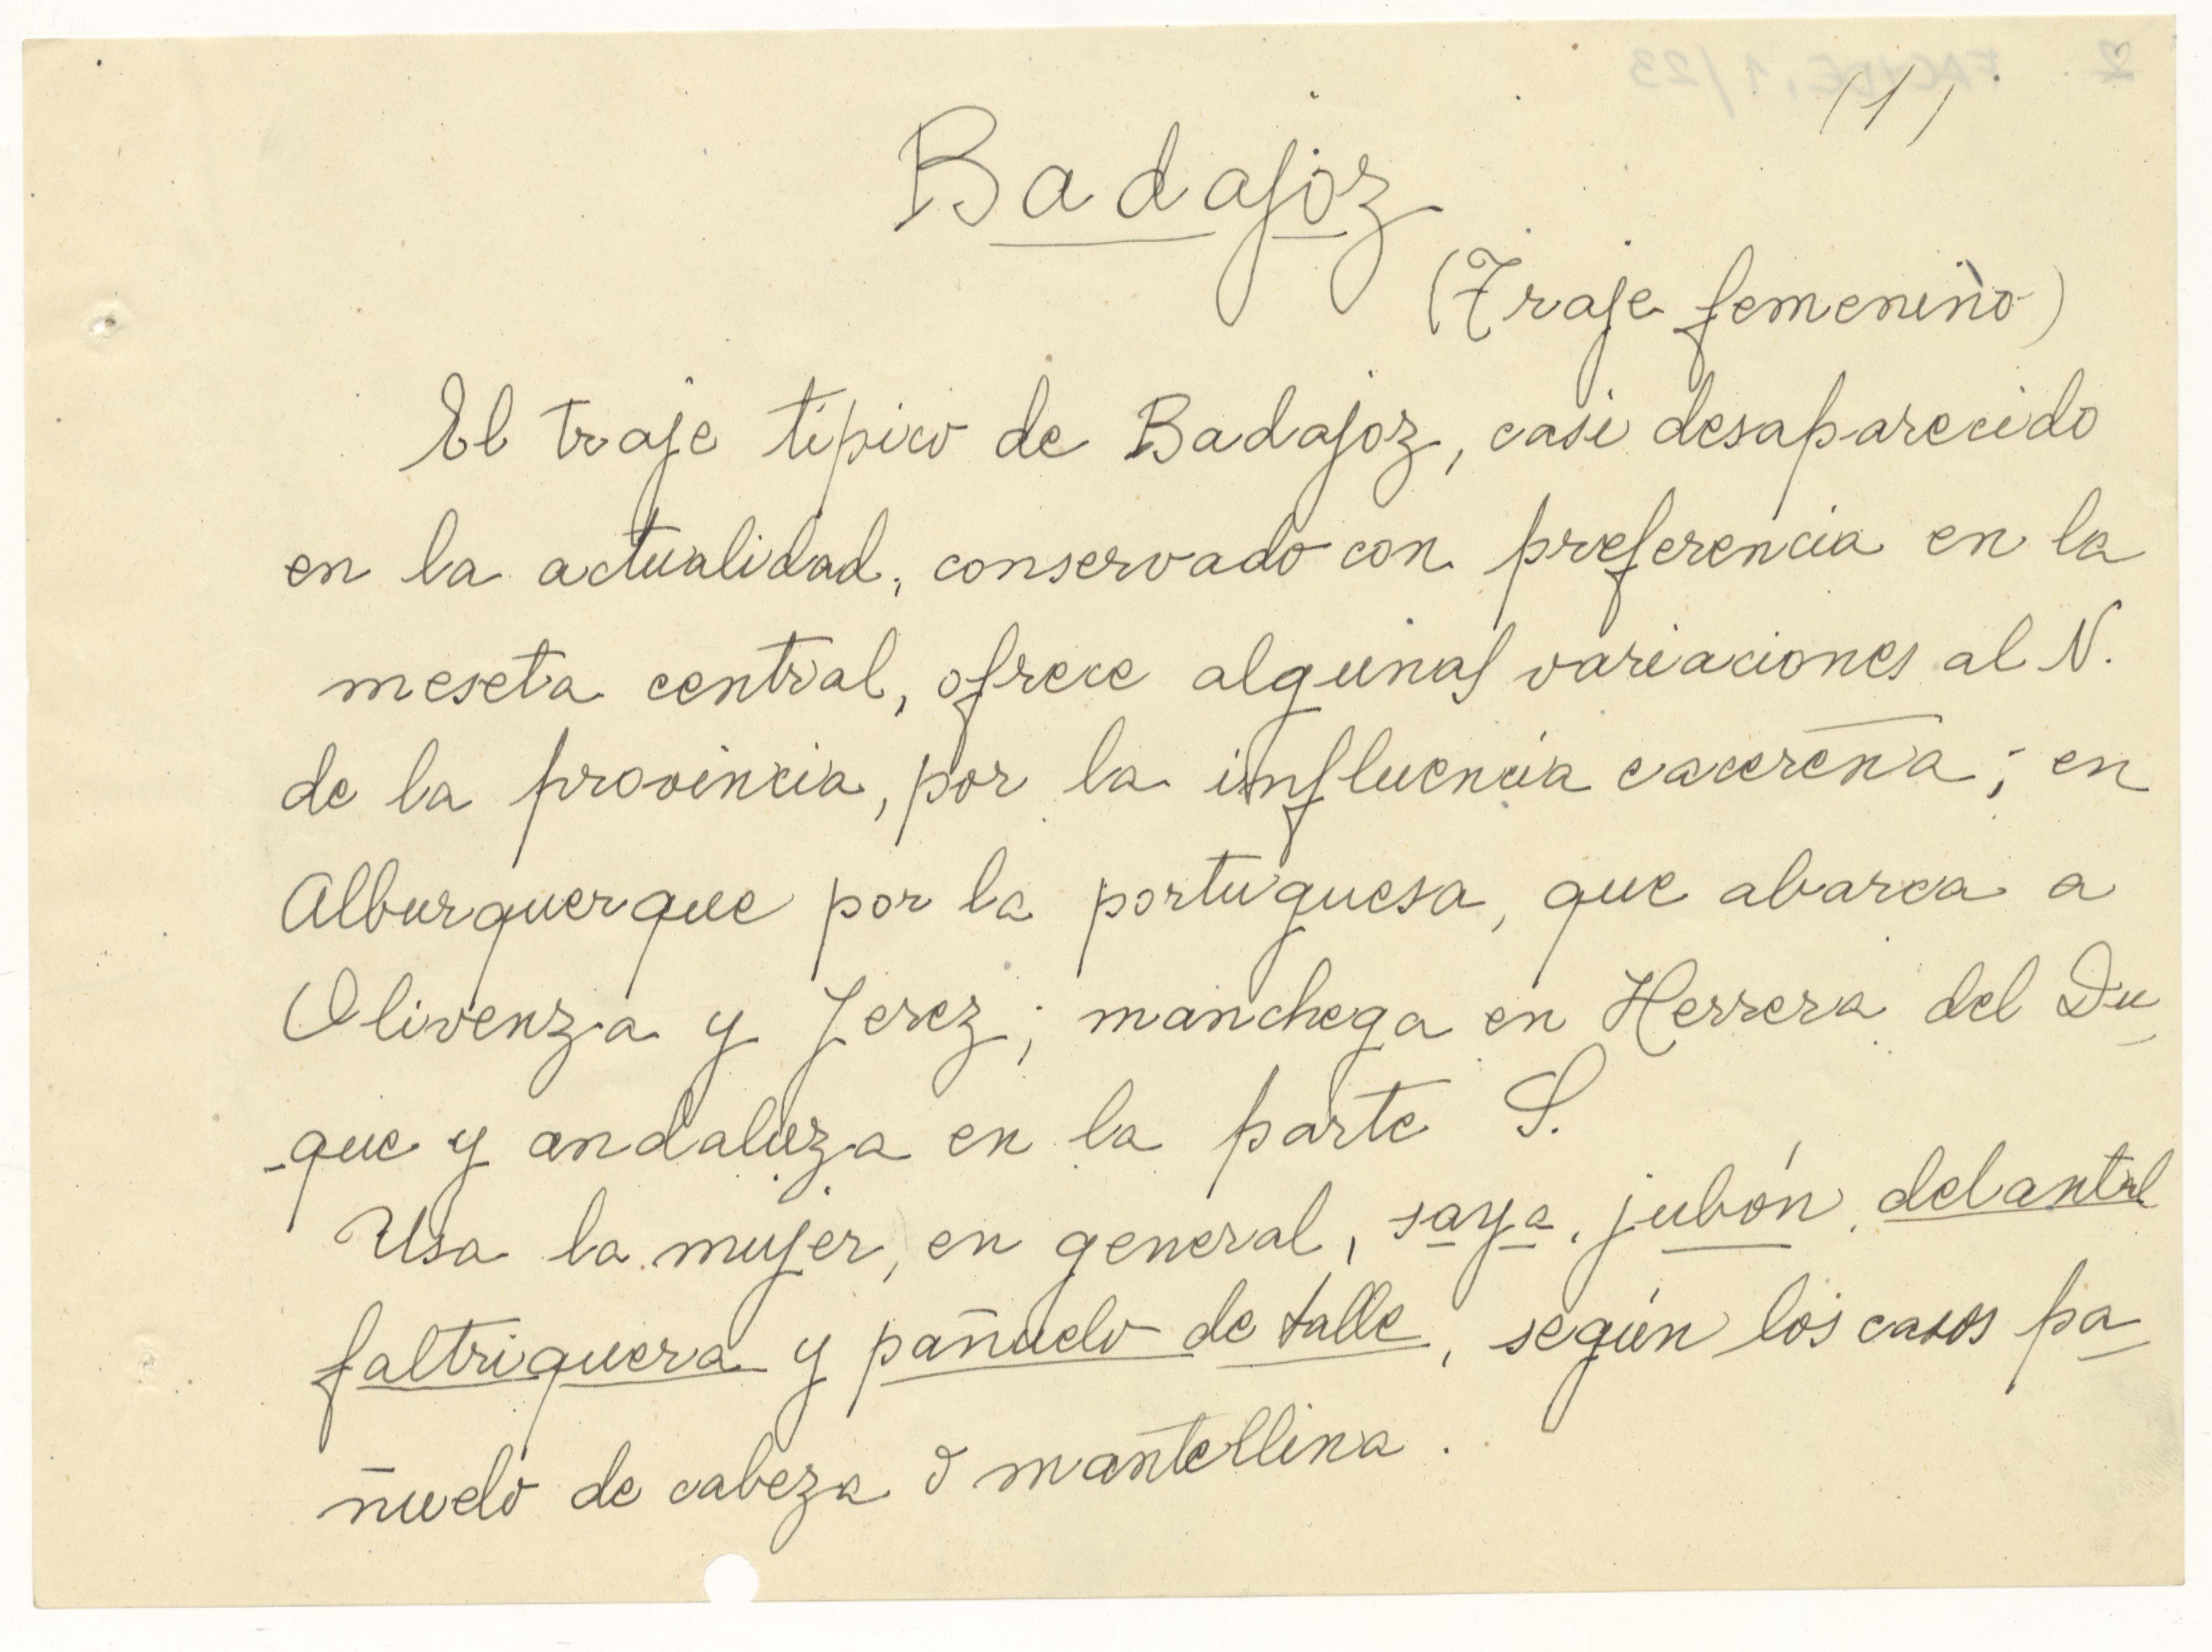 (1)
Badajoz
(Traje femenino)
El traje típico de Badajoz, casi desaparecido
en la actualidad, conservado con preferencia en la
meseta central, ofrece algunas variaciones al N.
de la provincia, por la influencia cacereña; en
Alburquerque por la portuguesa, que abarca a
Olivenza y Jerez; manchega en Herrera del Du-
-que y andaluza en la parte S.
Usa la mujer, en general, saya, jubón, delantal
faltriquera y pañuelo de talle, según los casos pa-
ñuelo de cabeza ó mantellina.